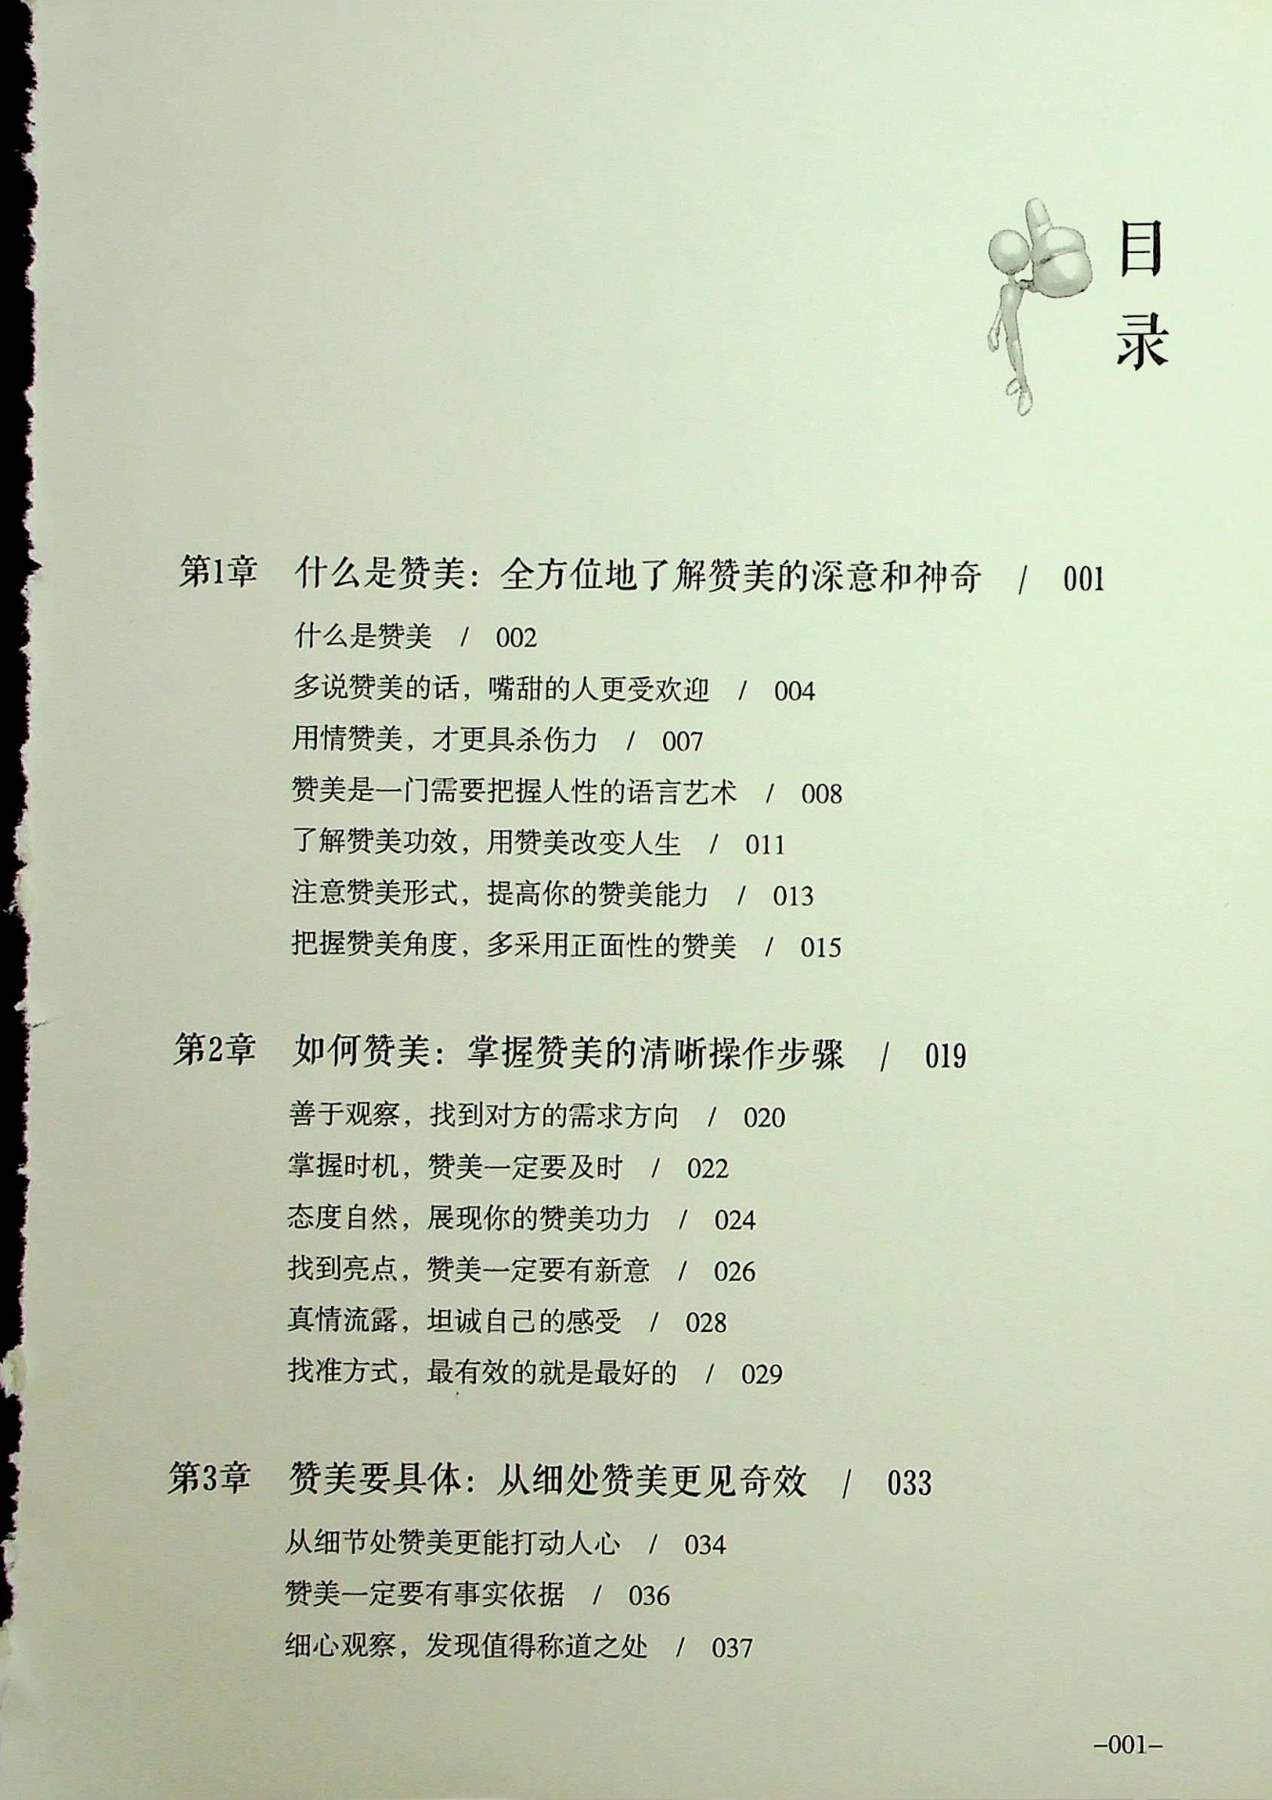 目录
第1章 什么是赞美：全方位地了解赞美的深意和神奇 / 001
什么是赞美 / 002
多说赞美的话，嘴甜的人更受欢迎 / 004
用情赞美，才更具杀伤力 / 007
赞美是一门需要把握人性的语言艺术 / 008
了解赞美功效，用赞美改变人生 / 011
注意赞美形式，提高你的赞美能力 / 013
把握赞美角度，多采用正面性的赞美 / 015
第2章 如何赞美：掌握赞美的清晰操作步骤 / 019
善于观察，找到对方的需求方向 / 020
掌握时机，赞美一定要及时 / 022
态度自然，展现你的赞美功力 / 024
找到亮点，赞美一定要有新意 / 026
真情流露，坦诚自己的感受 / 028
找准方式，最有效的就是最好的 / 029
第3章 赞美要具体：从细处赞美更见奇效 / 033
从细节处赞美更能打动人心 / 034
赞美一定要有事实依据 / 036
细心观察，发现值得称道之处 / 037
–001–